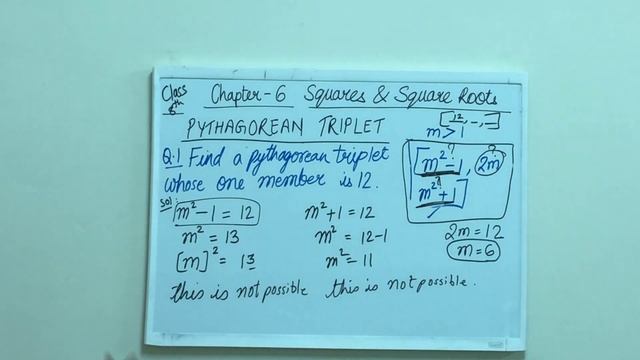 Class 8th
Chapter-6 Squares & Square Roots
PYTHAGOREAN TRIPLET
[12, -, -]
m > 1
Q.1 Find a pythagorean triplet
whose one member is 12.
[m²-1, 2m
m²+1]
? ? ?
Sol
m²-1 = 12
m² = 13
[m]² = 13
this is not possible
m²+1 = 12
m² = 12-1
m² = 11
this is not possible.
2m = 12
m = 6